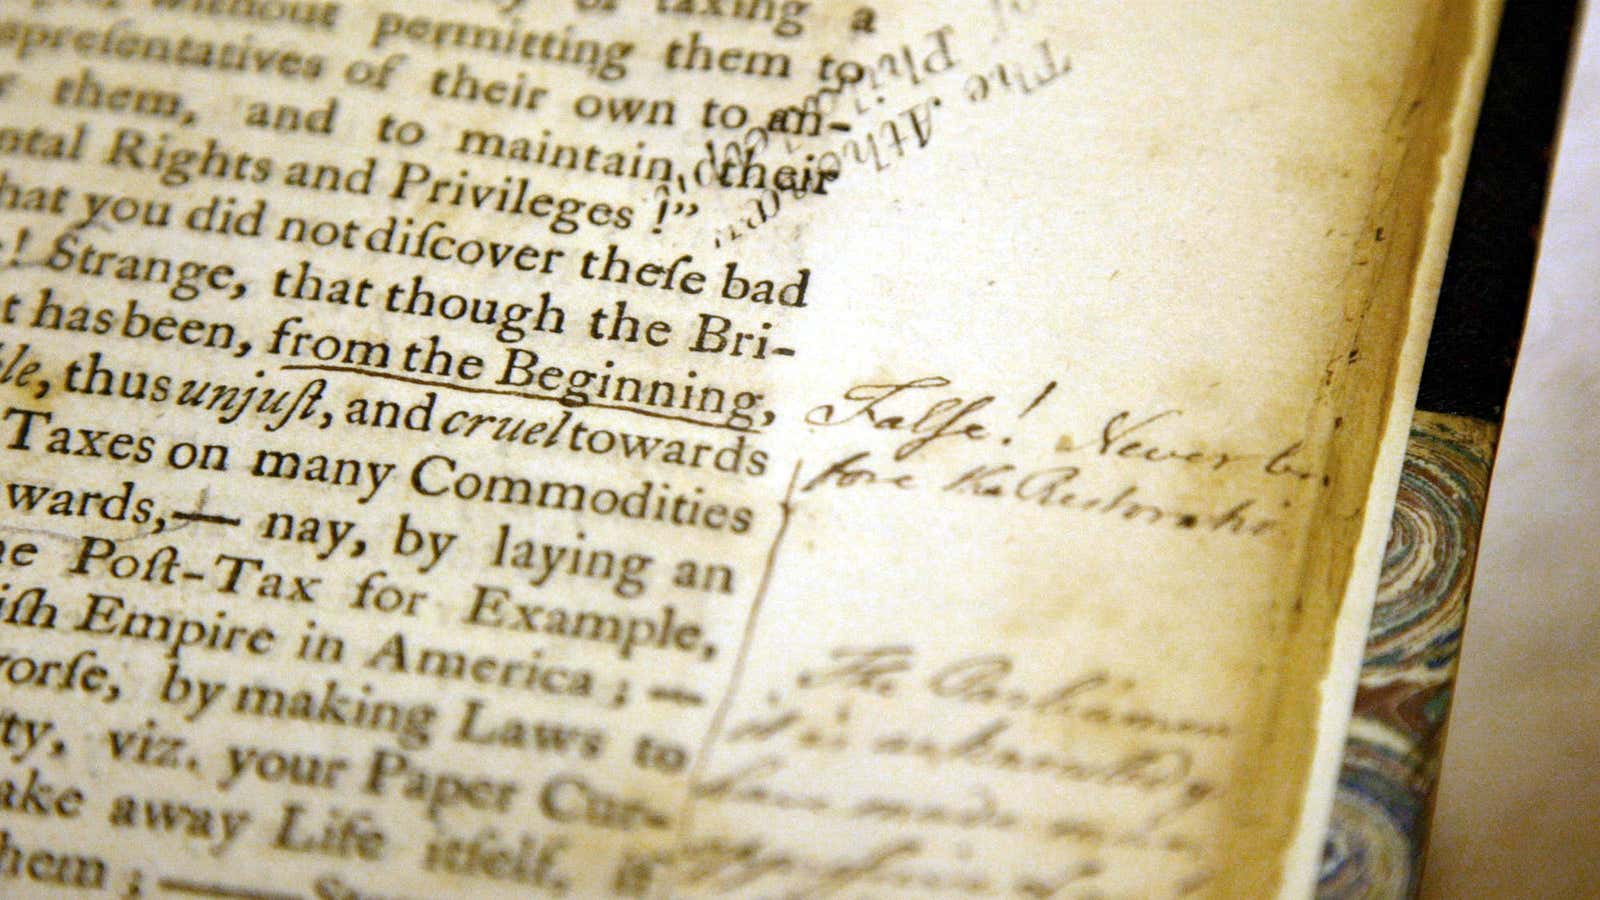 without permitting them to
epreſentatives of their own to an-
them, and to maintain their
Rights and Privileges !”
hat you did not diſcover theſe bad
! Strange, that though the Bri-
t has been, from the Beginning,
le, thus unjuſt, and cruel towards
Taxes on many Commodities
wards,— nay, by laying an
e Poſt-Tax for Example,
iſh Empire in America ; —
orſe, by making Laws to
ty, viz. your Paper Cur-
ake away Life itſelf, if
hem ; —
The Athenæum
of Philadel
False! Never be-
fore the Restoratn.
The Parliament
it is acknowledg
have made many
oppressive